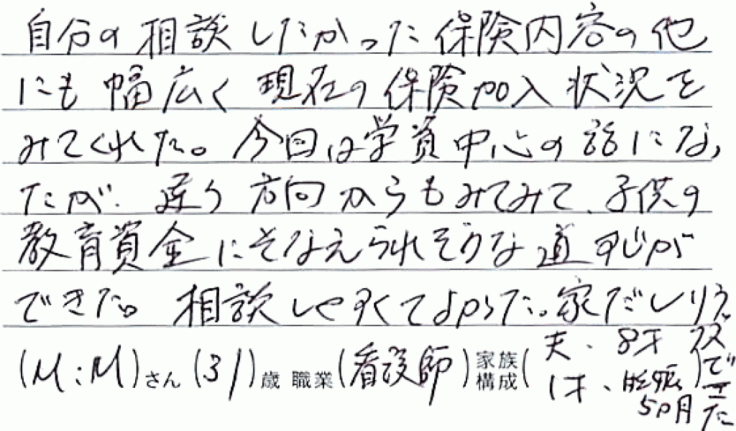 自分の相談したかった保険内容の他
にも幅広く現在の保険加入状況を
みてくれた。今回は学資中心の話になっ
たが、違う方向からもみてみて、子供の
教育資金にそなえられそうな道すじが
できた。相談しやすくてよかった。家だしリラ
ックスできた
(M:M)さん(31)歳 職業(看護師)家族構成(夫、8才
1才、妊娠5ヶ月)